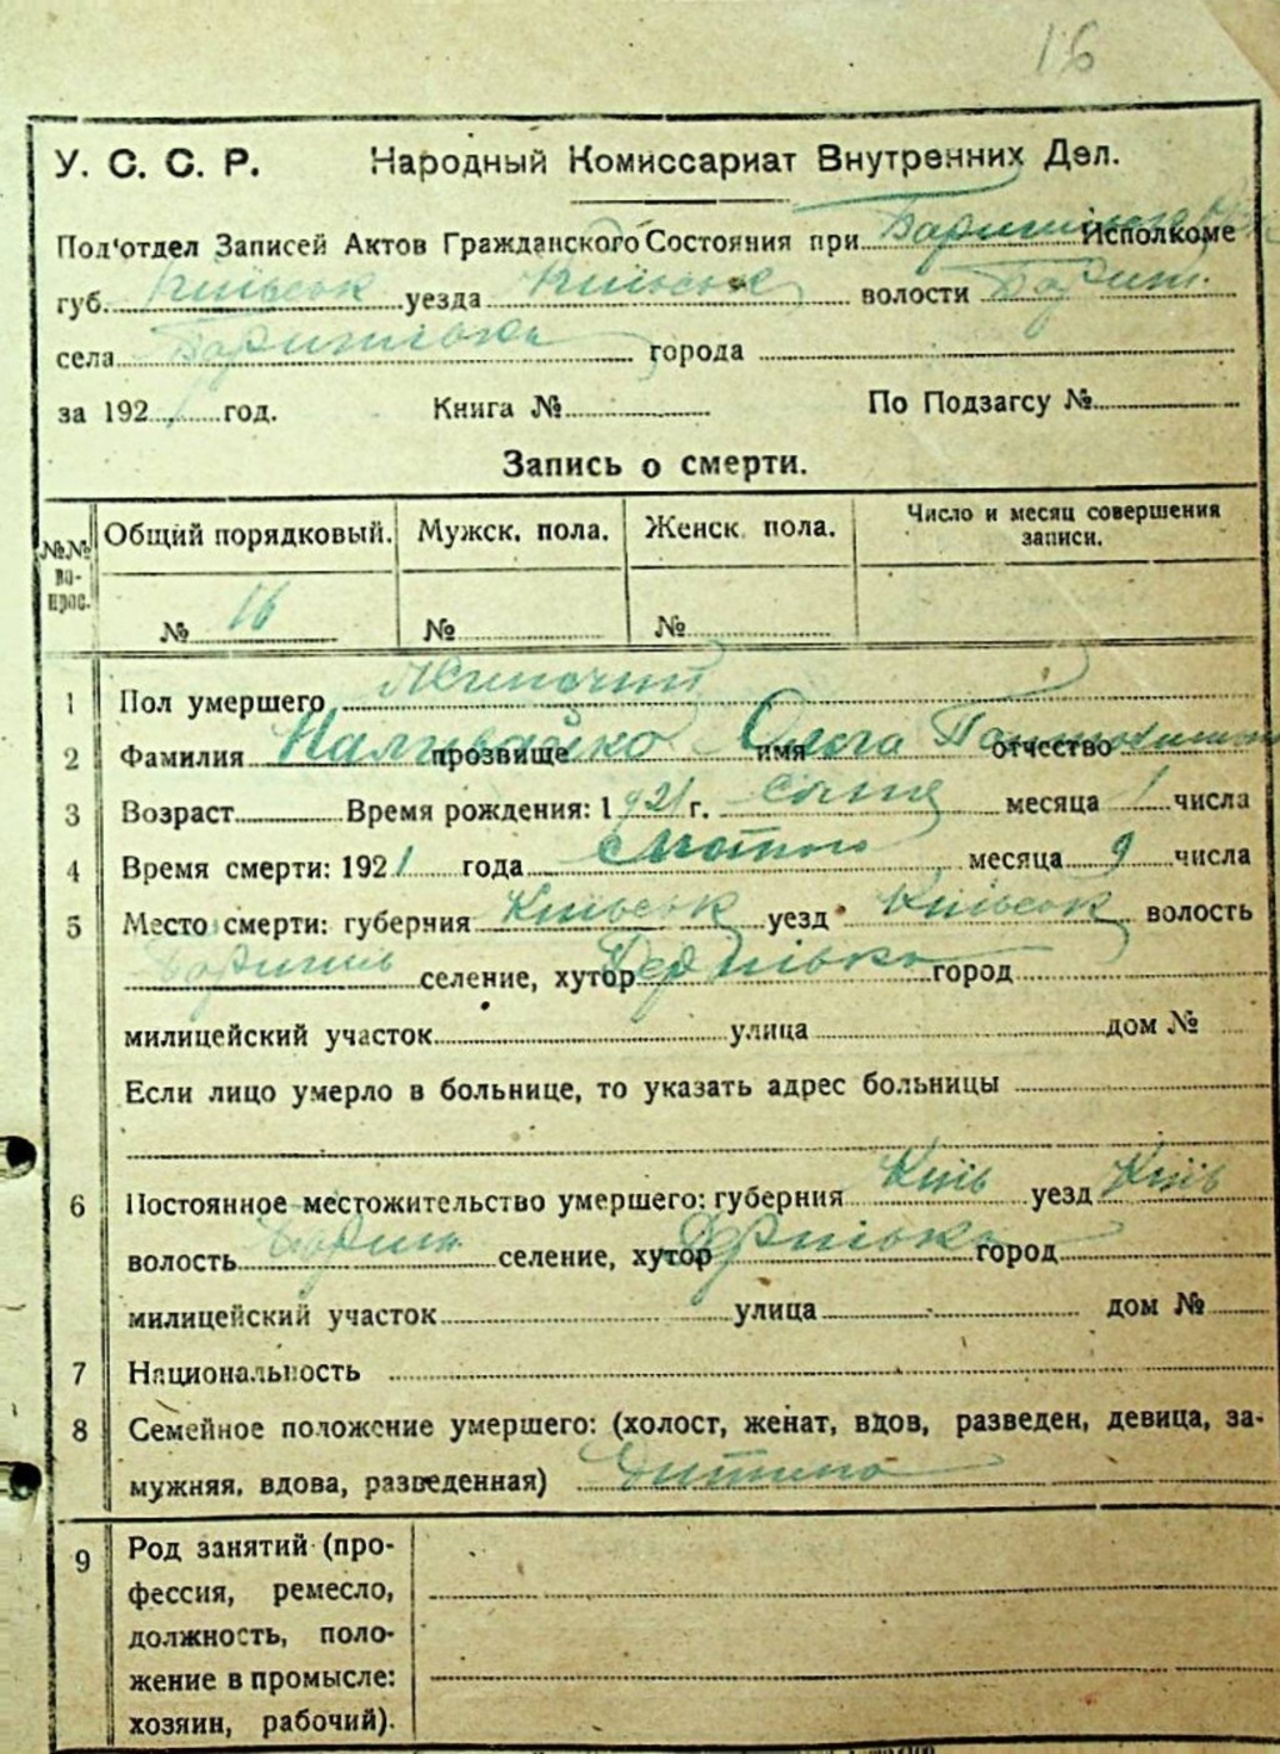 16
У. С. С. Р. Народный Комиссариат Внутренних Дел.
Под'отдел Записей Актов Гражданского Состояния при Исполкоме
губ. Київськ уезда Київськ волости Бориш.
села города
за 1921 год. Книга № По Подзагсу №
Запись о смерти.
№№ вопрос. Общий порядковый. Мужск. пола. Женск. пола. Число и месяц совершения записи.
№ 16 № №
1 Пол умершего Жиночий
2 Фамилия Наливайко прозвище имя Ольга отчество
3 Возраст Время рождения: 1921 г. Січня месяца 1 числа
4 Время смерти: 1921 года месяца 9 числа
5 Место смерти: губерния Київськ уезд Київськ волость
селение, хутор город
милицейский участок улица дом №
Если лицо умерло в больнице, то указать адрес больницы
6 Постоянное местожительство умершего: губерния Київ уезд Київ
волость селение, хутор город
милицейский участок улица дом №
7 Национальность
8 Семейное положение умершего: (холост, женат, вдов, разведен, девица, за-
мужняя, вдова, разведенная) Дитина
9 Род занятий (про-
фессия, ремесло,
должность, поло-
жение в промысле:
хозяин, рабочий).